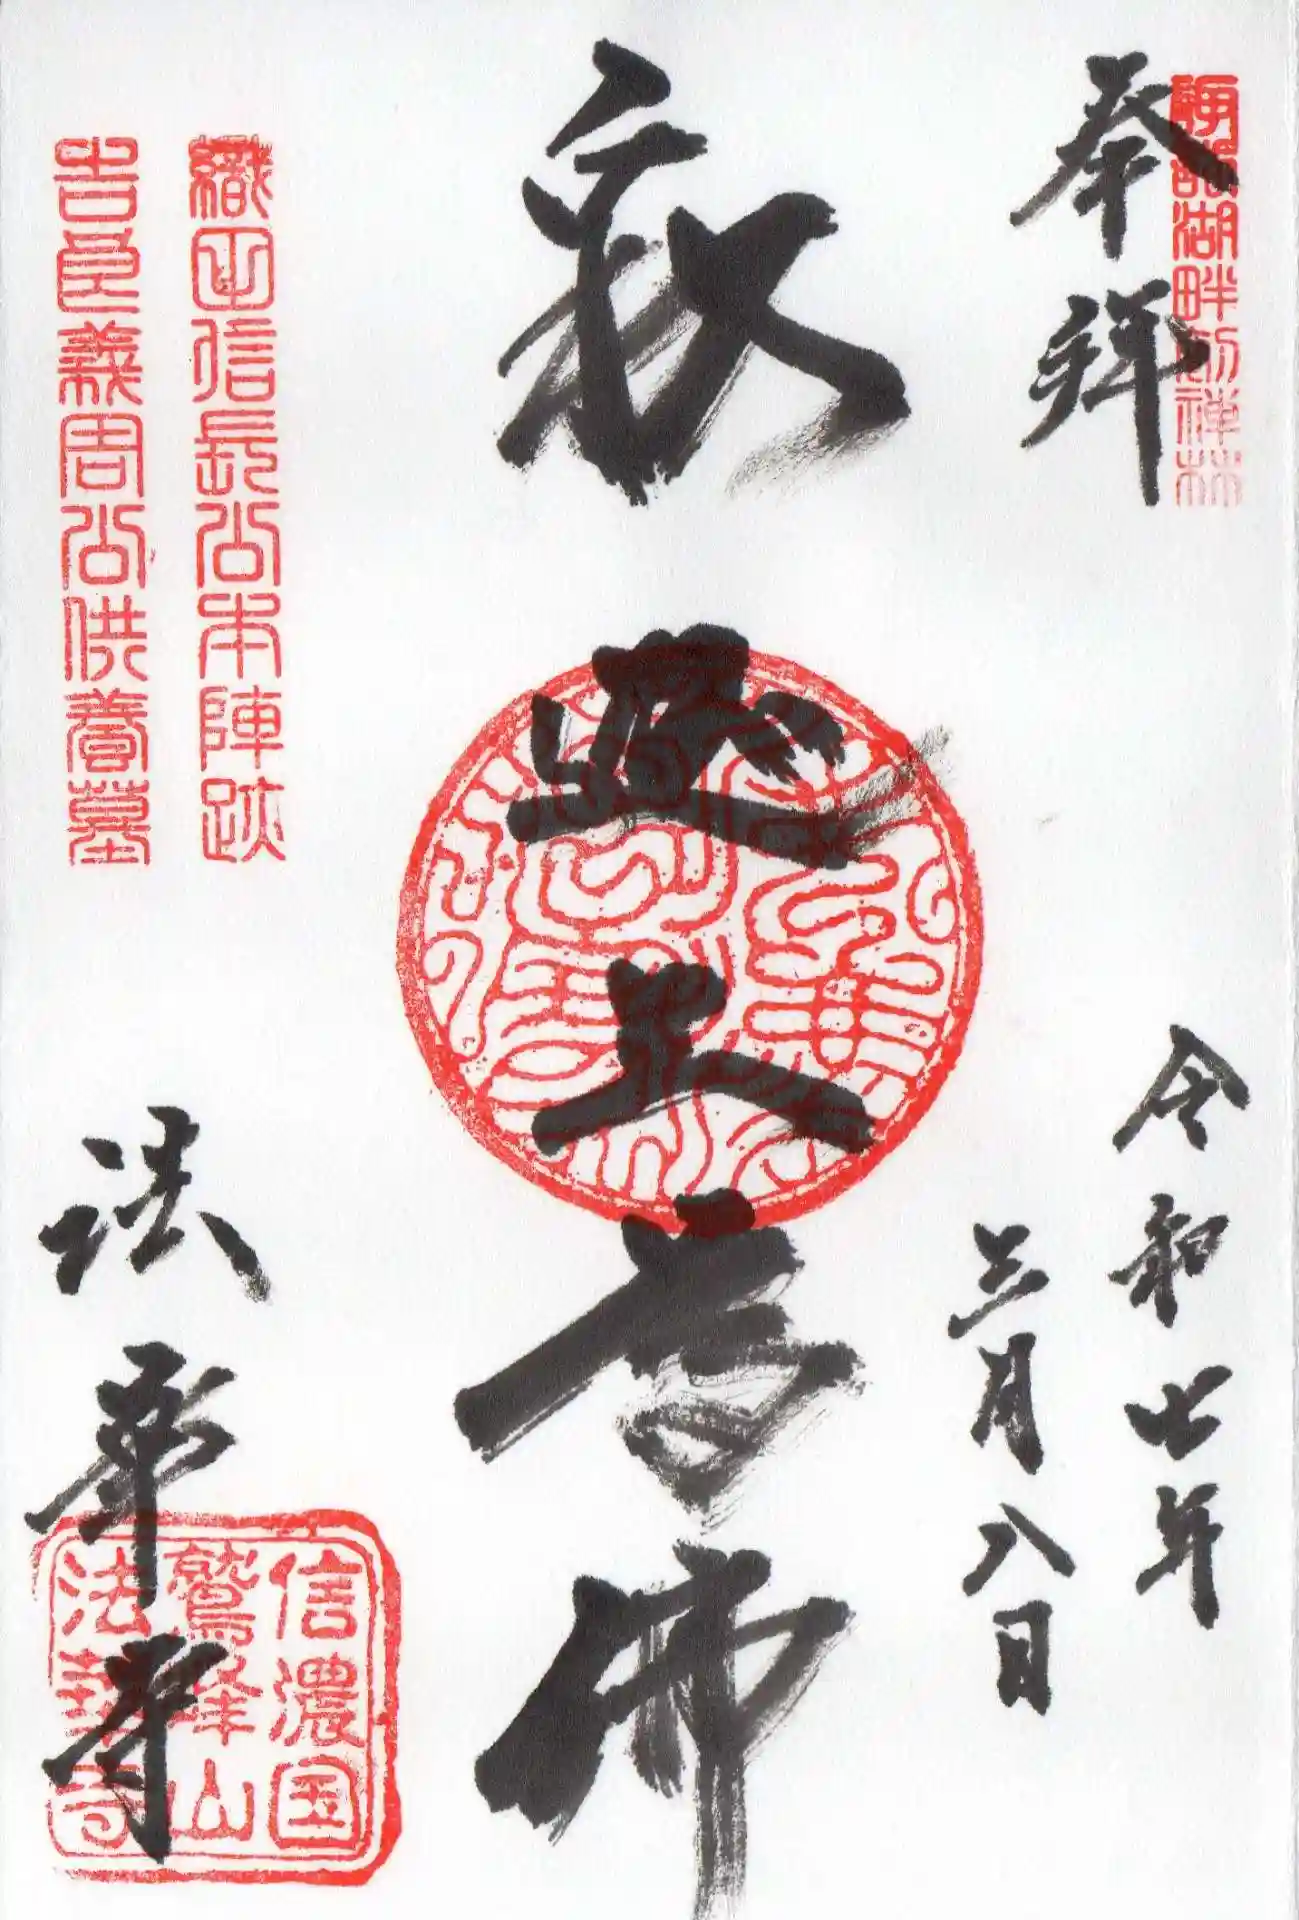 諏訪湖畔初禅林
奉拝
令和七年
三月八日
釈迦牟尼佛
織田信長公本陣跡
吉良義周公供養墓
法華寺
信濃国
鷲峰山
法華寺